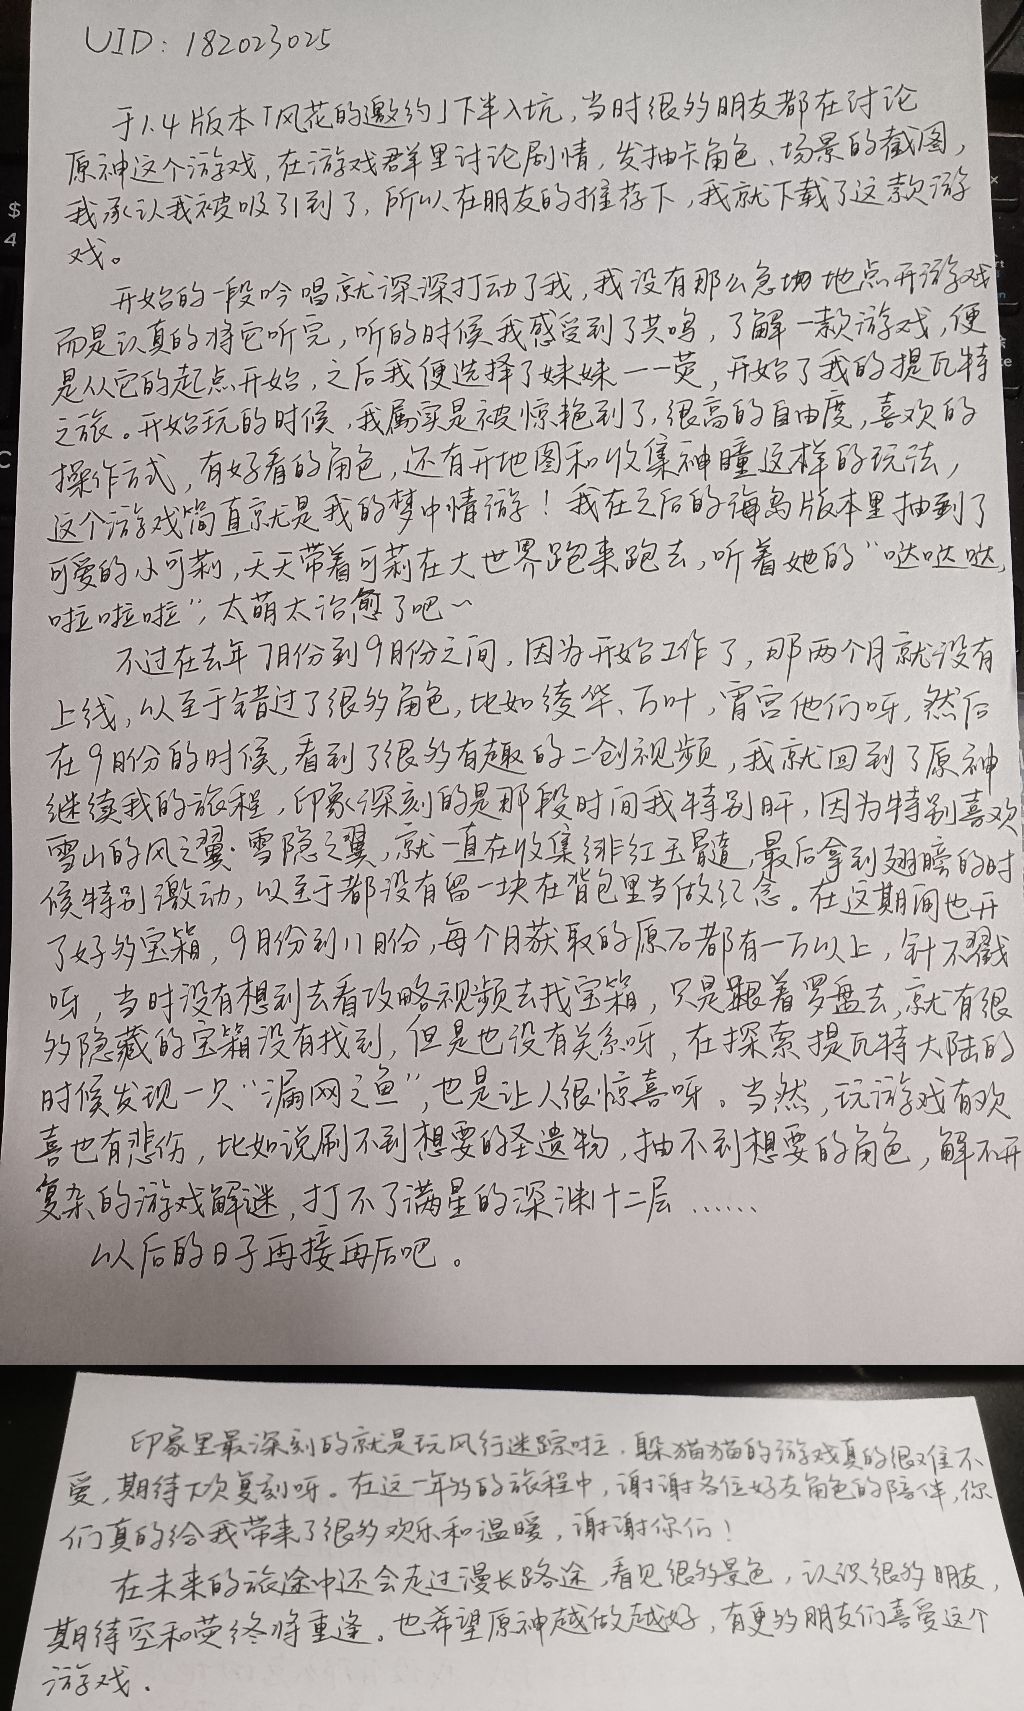 UID：182023025
于1.4版本「风花的邀约」下半入坑，当时很多朋友都在讨论
原神这个游戏，在游戏群里讨论剧情，发抽卡角色、场景的截图，
我承认我被吸引到了，所以在朋友的推荐下，我就下载了这款游
戏。
开始的一段吟唱就深深打动了我，我没有那么急切地点开游戏
而是认真的将它听完，听的时候我感受到了共鸣，了解一款游戏，便
是从它的起点开始，之后我便选择了妹妹——荧，开始了我的提瓦特
之旅。开始玩的时候，我属实是被惊艳到了，很高的自由度，喜欢的
操作方式，有好看的角色，还有开地图和收集神瞳这样的玩法，
这个游戏简直就是我的梦中情游！我在之后的海岛版本里抽到了
可爱的小可莉，天天带着可莉在大世界跑来跑去，听着她的“哒哒哒，
啦啦啦”，太萌太治愈了吧~
不过在去年7月份到9月份之间，因为开始工作了，那两个月就没有
上线，以至于错过了很多角色，比如绫华、万叶，宵宫他们呀，然后
在9月份的时候，看到了很多有趣的二创视频，我就回到了原神
继续我的旅程，印象深刻的是那段时间我特别肝，因为特别喜欢
雪山的风之翼·雪隐之翼，就一直在收集绯红玉髓，最后拿到翅膀的时
候特别激动，以至于都没有留一块在背包里当做纪念。在这期间也开
了好多宝箱，9月份到11月份，每个月获取的原石都有一万以上，针不戳
呀，当时没有想到去看攻略视频去找宝箱，只是跟着罗盘去，就有很
多隐藏的宝箱没有找到，但是也没有关系呀，在探索提瓦特大陆的
时候发现一只“漏网之鱼”，也是让人很惊喜呀。当然，玩游戏有欢
喜也有悲伤，比如说刷不到想要的圣遗物，抽不到想要的角色，解不开
复杂的游戏解谜，打不了满星的深渊十二层……
以后的日子再接再后吧。
印象里最深刻的就是玩风行迷踪啦，躲猫猫的游戏真的很难不
爱，期待下次复刻呀。在这一年多的旅程中，谢谢各位好友角色的陪伴，你
们真的给我带来了很多欢乐和温暖，谢谢你们！
在未来的旅途中还会走过漫长路途，看见很多景色，认识很多朋友，
期待空和荧终将重逢。也希望原神越做越好，有更多朋友们喜爱这个
游戏。
$
4
C